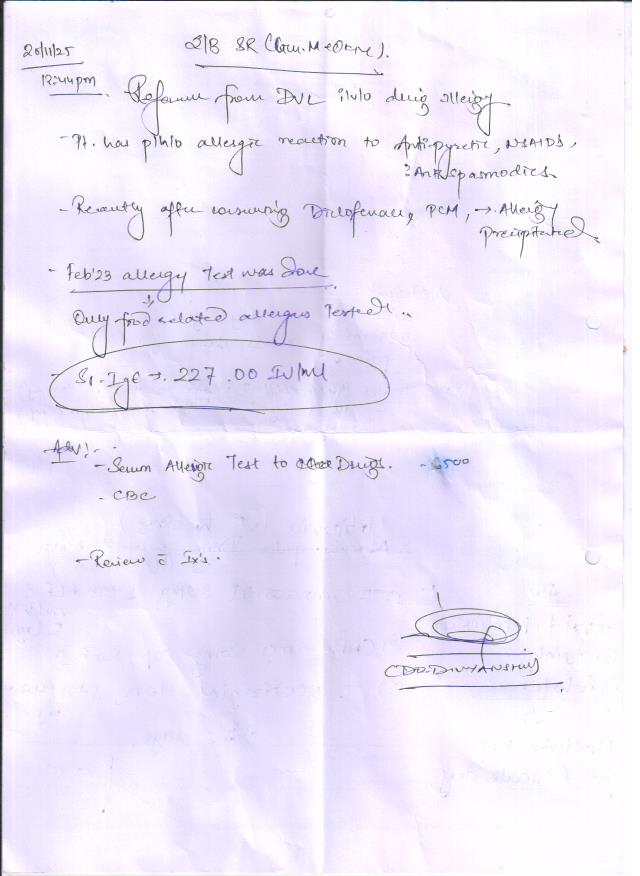 20/11/25
S/B SR (Gen. Medicine).
12:44pm
Referral from DVL i/v/o drug allergy
- Pt. has p/h/o allergic reaction to Antipyretic, NSAIDS,
? Antispasmodics.
- Recently after consuming Diclofenac, PCM, → Allergy
Precipitated
- Feb'23 allergy Test was done
↓
Only food related allergens Tested..
- Sr. IgE → 227.00 IU/ml
Adv:-
- Serum Allergic Test to Drugs. - 6500
- CBC
- Review c̄ Ix's.
(DR. DIVYANSHU)